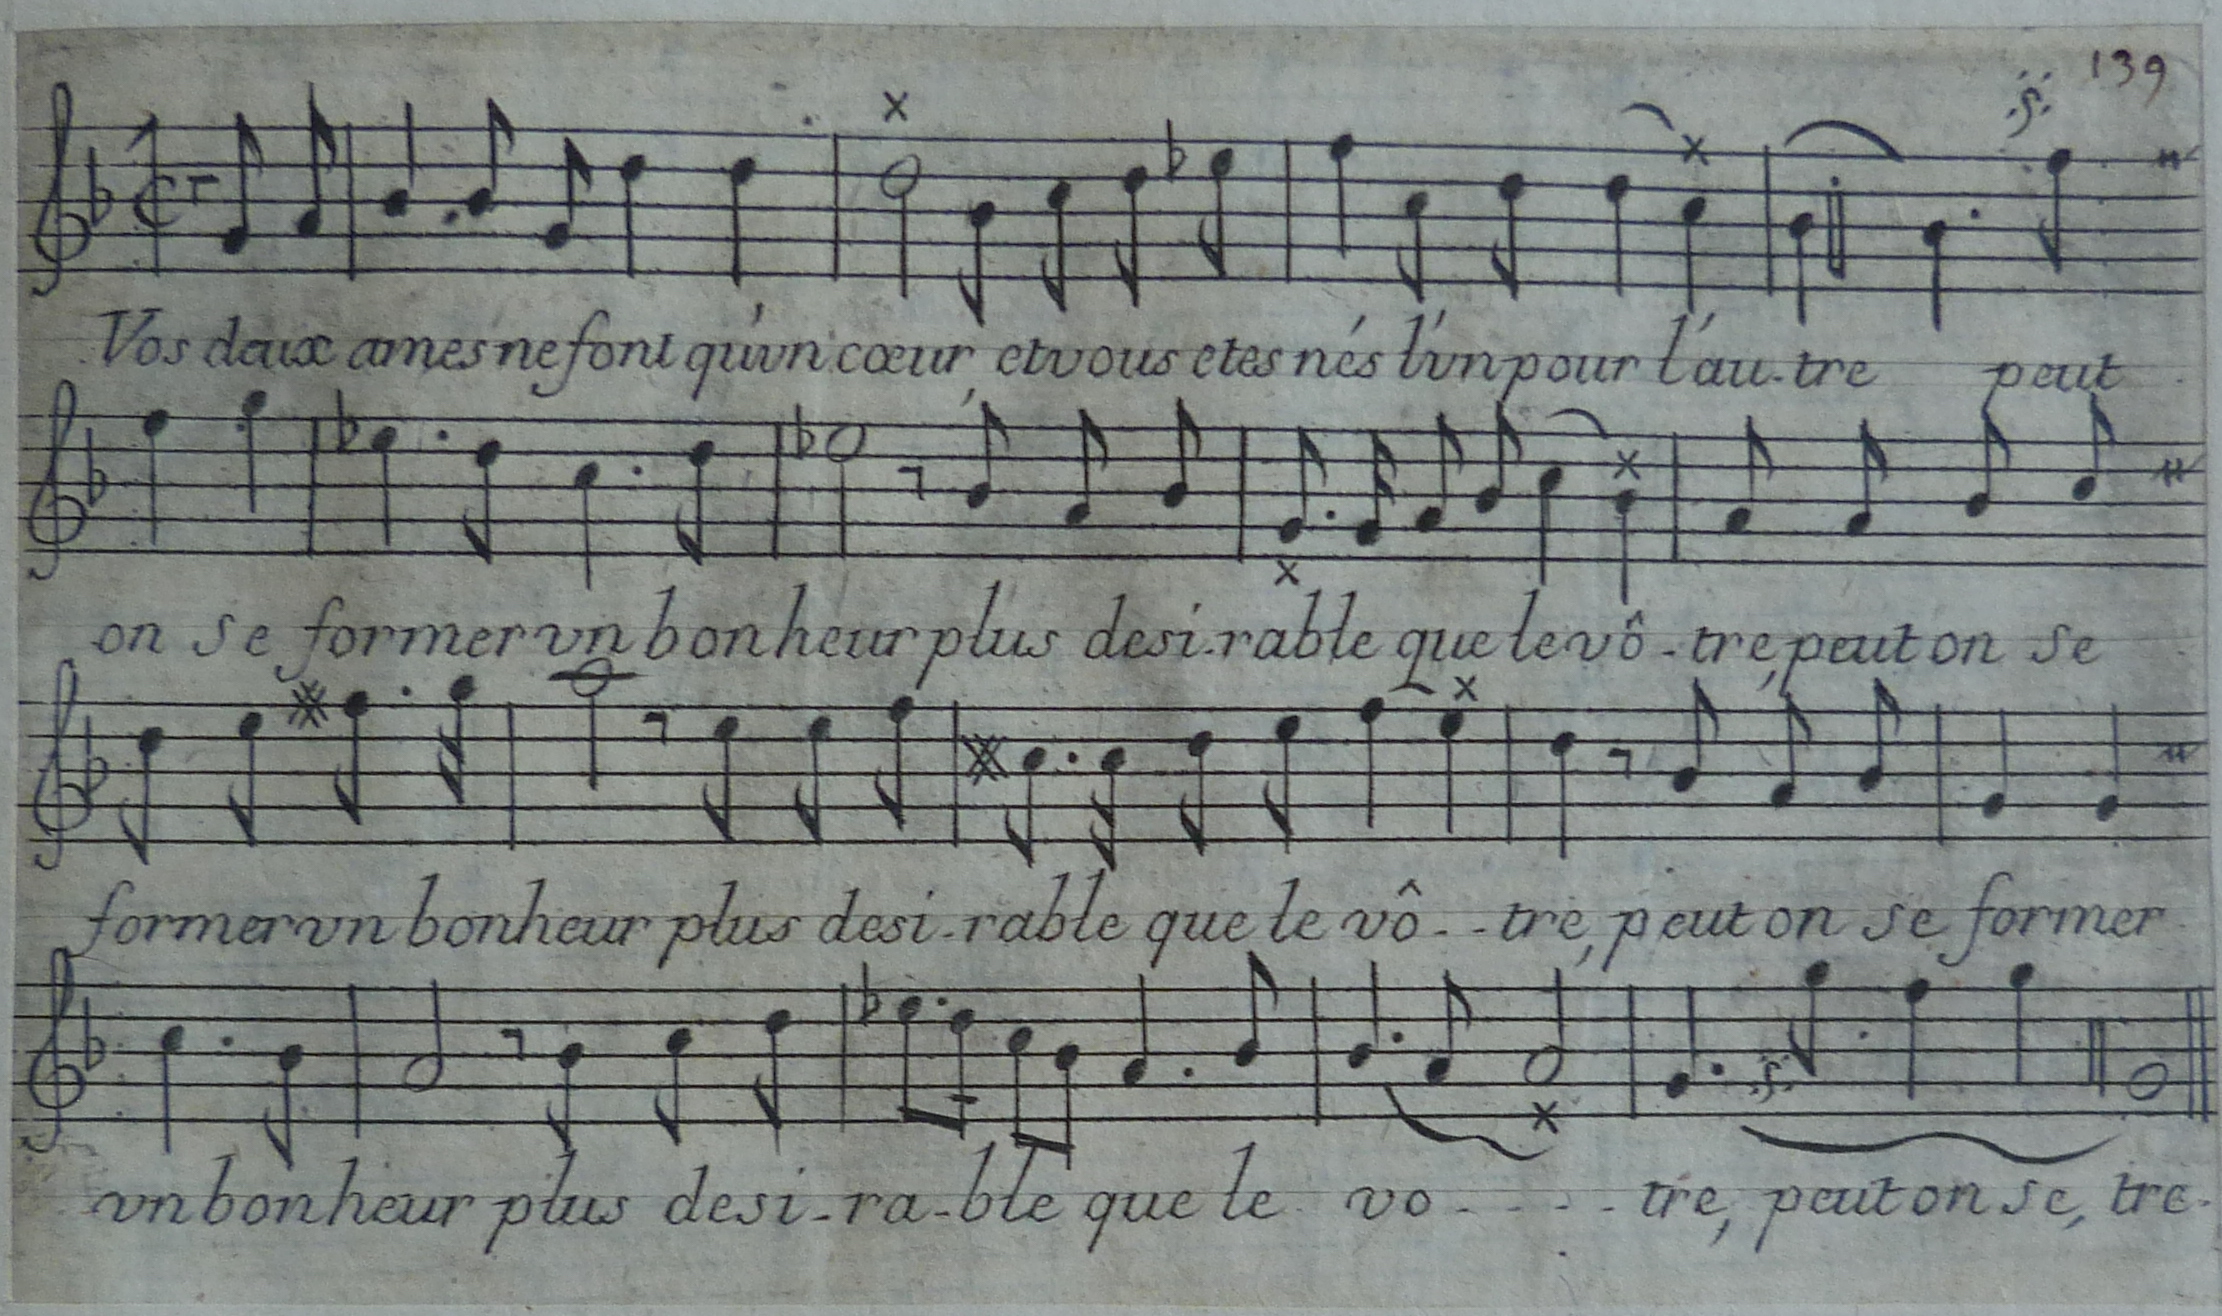 139
Vos deux ames ne font qu'vn cœur et vous etes nés l'vn pour l'au-tre peut
on se former vn bonheur plus desi-rable que le vô-tre, peut on se
former vn bonheur plus desi-rable que le vô--tre, peut on se former
vn bonheur plus desi-ra-ble que le vo----tre, peut on se, tre-